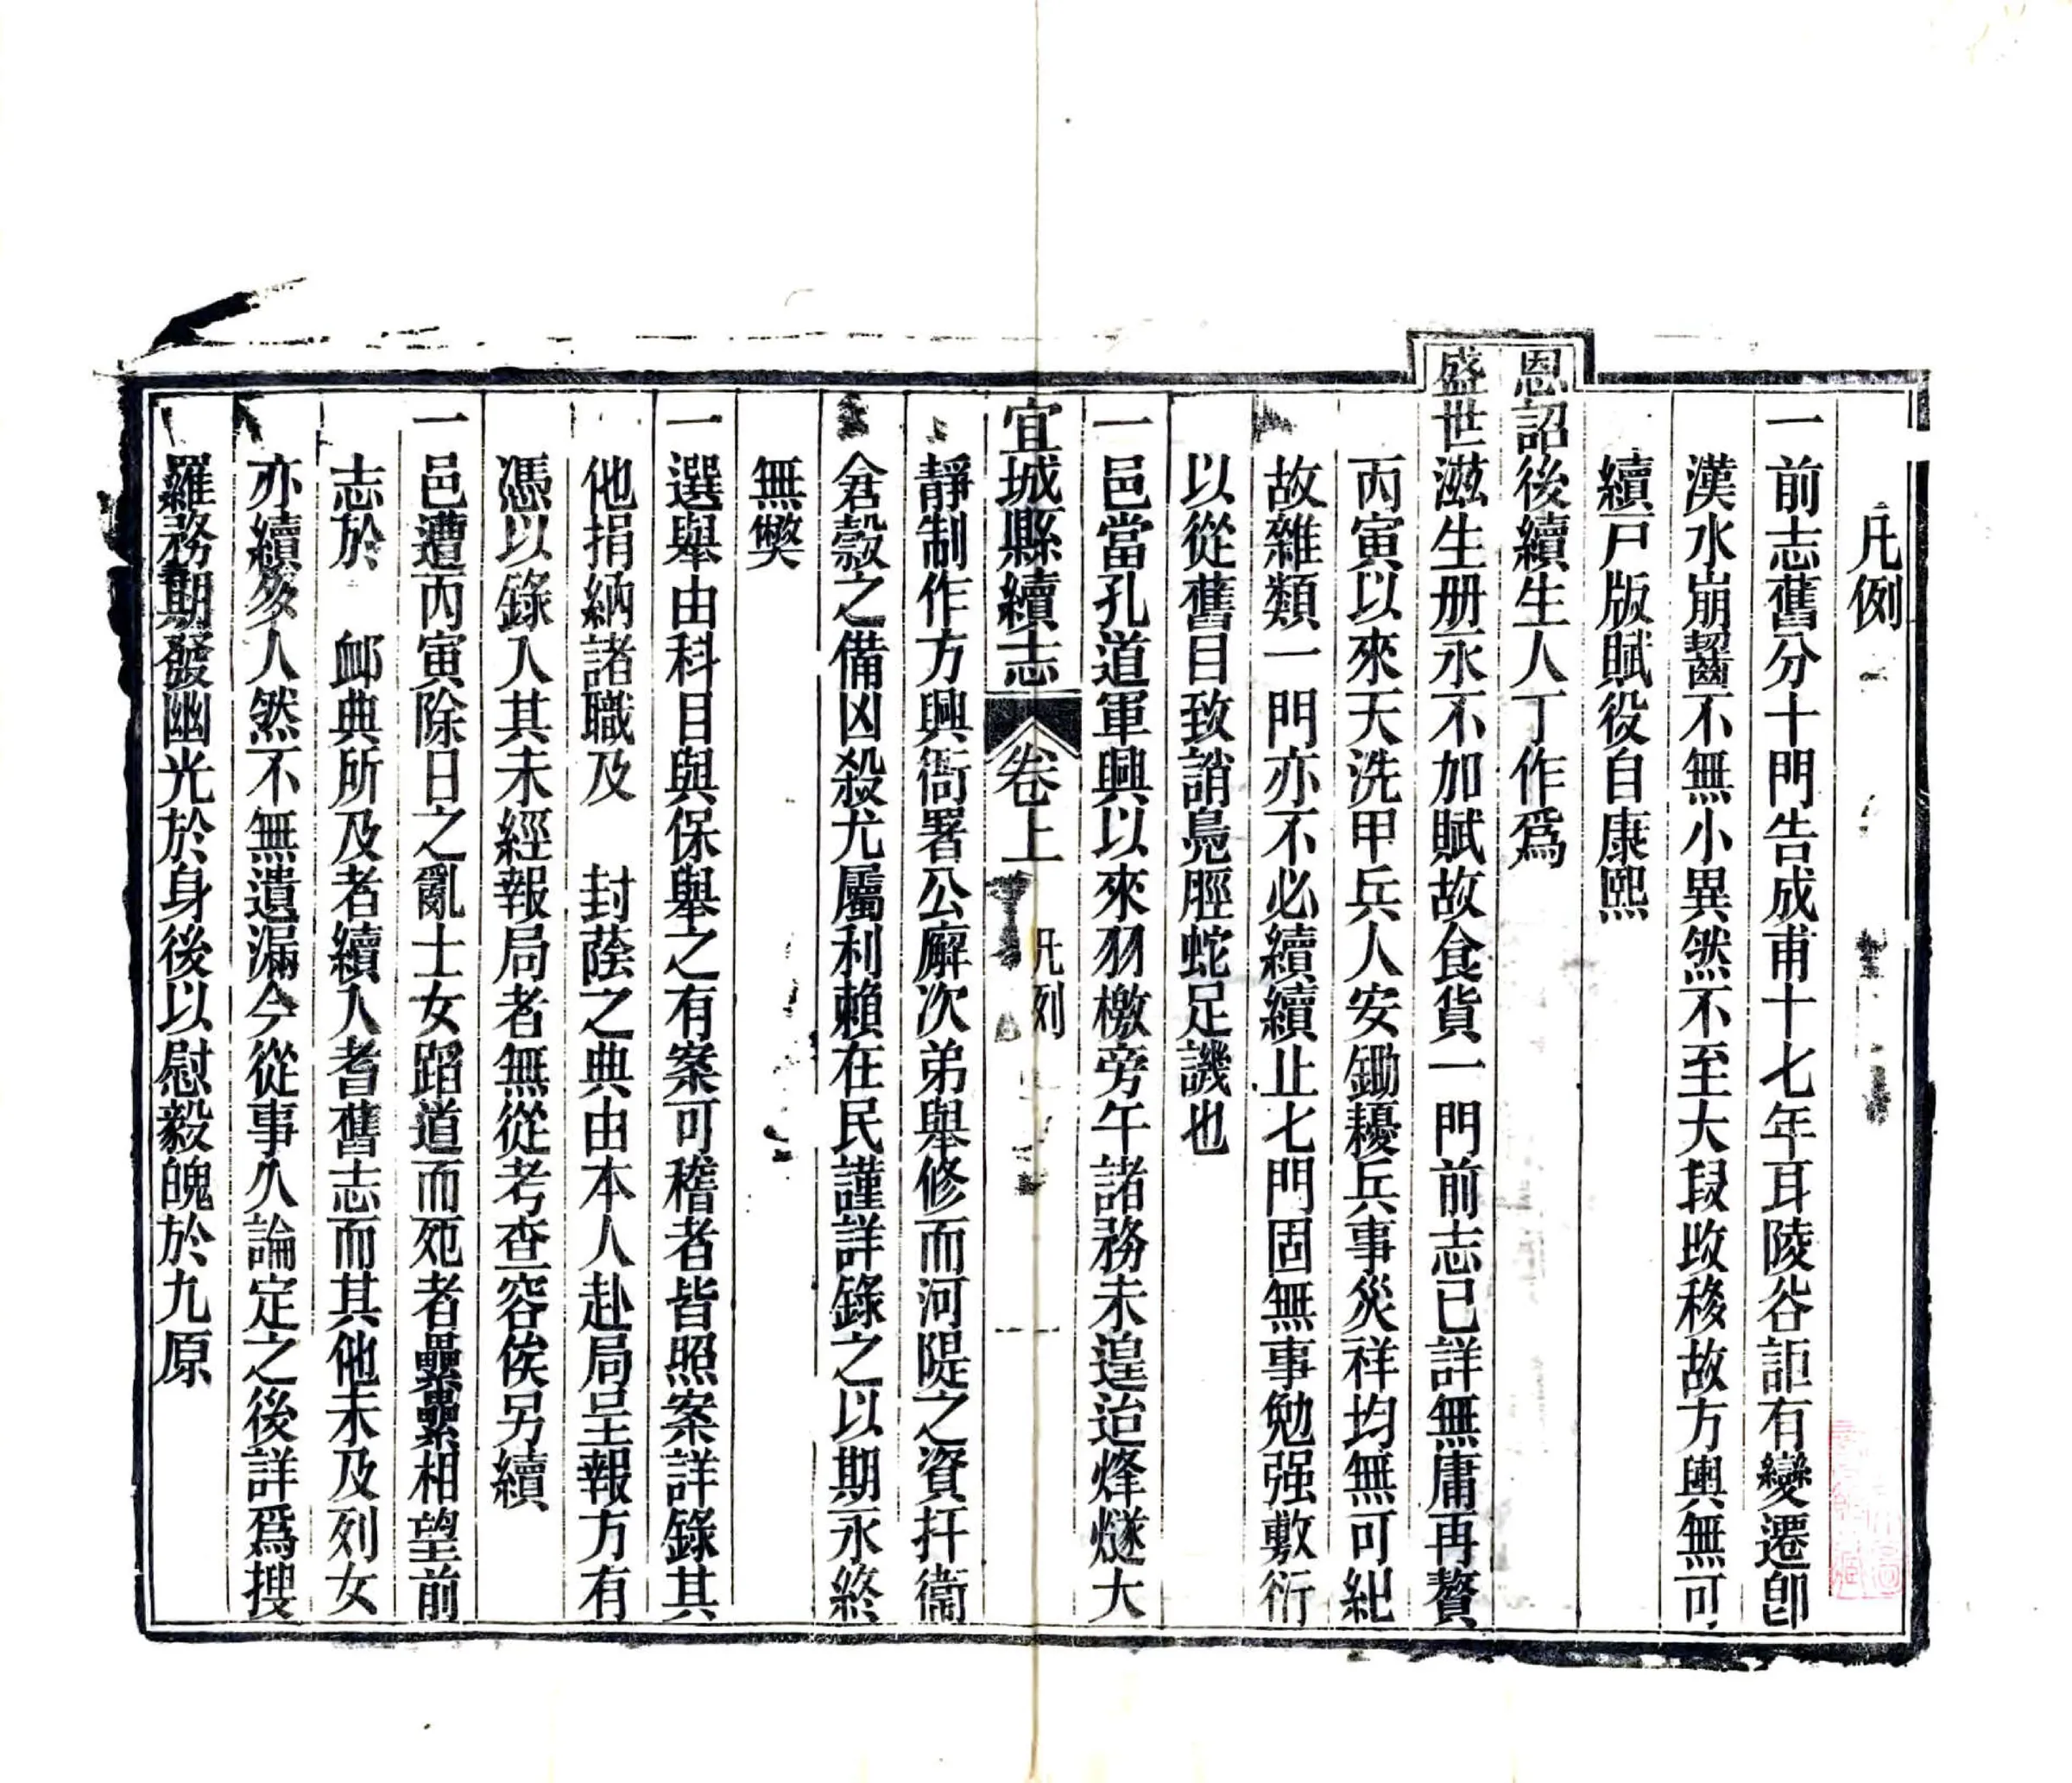 凡例
一前志舊分十門告成甫十七年耳陵谷詎有變遷卽
漢水崩齧不無小異然不至大段改移故方輿無可
續戸版賦役自康熙
恩詔後續生人丁作爲
盛世滋生册永不加賦故食貨一門前志已詳無庸再贅
丙寅以來天洗甲兵人安鋤耰兵事災祥均無可紀
故雜類一門亦不必續續止七門固無事勉强敷衍
以從舊目致誚鳧脛蛇足譏也
一邑當孔道軍興以來羽檄旁午諸務未遑迨烽燧大
宜城縣續志 卷上 凡例 一
靜制作方興衙署公廨次弟舉修而河隄之資扞衞
倉穀之備凶殺尤屬利賴在民謹詳錄之以期永終
無獘
一選舉由科目與保舉之有案可稽者皆照案詳錄其
他捐納諸職及 封蔭之典由本人赴局呈報方有
憑以錄入其未經報局者無從考查容俟另續
一邑遭丙寅除日之亂士女蹈道而死者纍纍相望前
志於 卹典所及者續入耆舊志而其他未及列女
亦續多人然不無遺漏今從事久論定之後詳爲搜
羅務期發幽光於身後以慰毅魄於九原